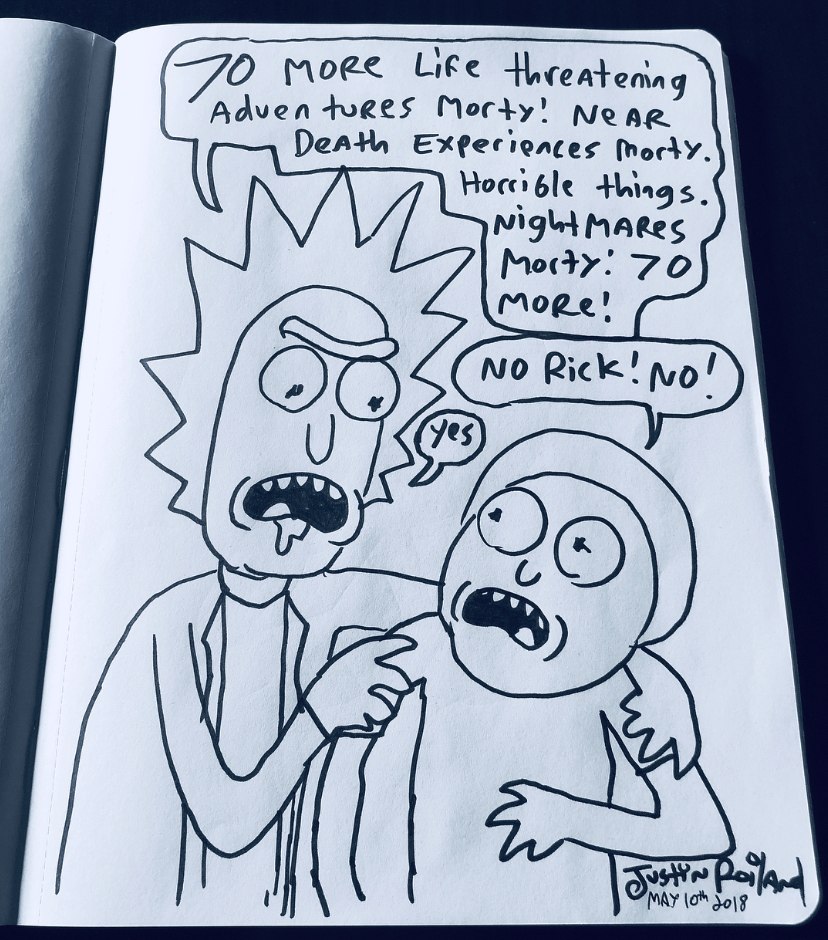 70 MORE Life threatening
AdvenTURES Morty! NEAR
DeATh ExperienCES Morty.
Horrible things.
NightMARES
Morty! 70
MORe!
NO Rick! NO!
yes
Justin Roiland
MAY 10th 2018